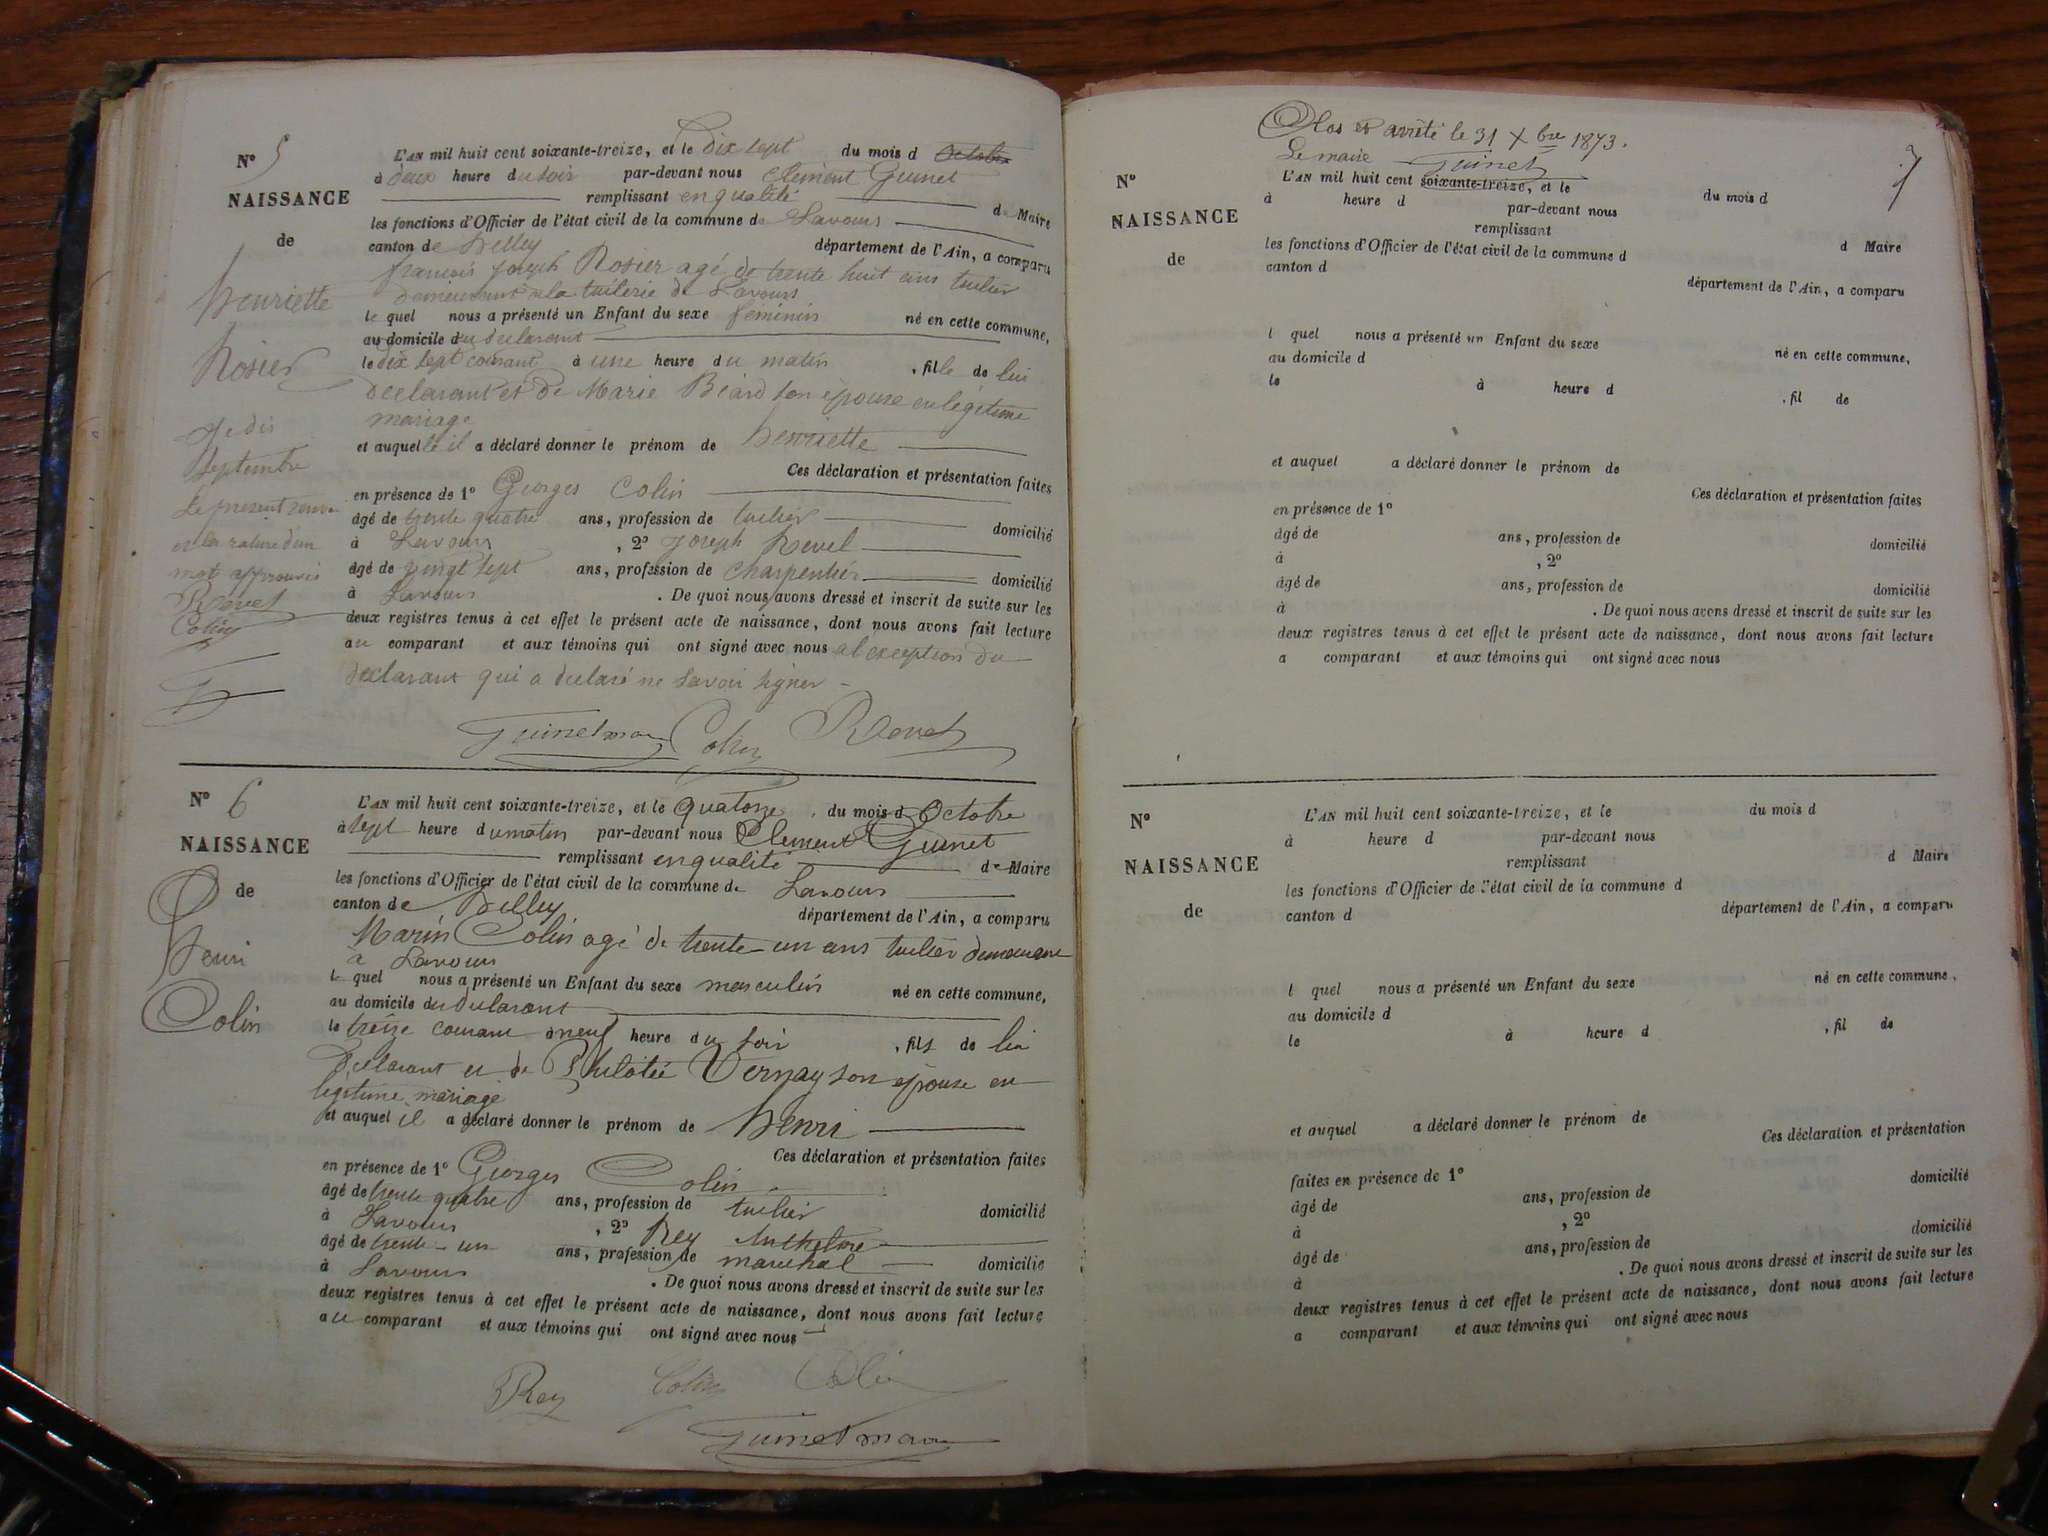 N° 5
NAISSANCE
de
henriette
Rosier
Je dis
Septembre
Le present renvoi
et la rature d'un
mot approuvés
Revel
Colin
L'AN mil huit cent soixante-treize, et le Dix sept du mois d Octobre
à deux heure du soir par-devant nous Clément Guinet
remplissant en qualité de Maire
les fonctions d'Officier de l'état civil de la commune de Lavours
canton de Belley département de l'Ain, a comparu
françois Joseph Rosier agé de trente huit ans tuilier
demeurant à la tuilerie de Lavours
le quel nous a présenté un Enfant du sexe féminin né en cette commune,
au domicile du declarant
le dix sept courant à une heure du matin , fille de lui
declarant et de Marie Béard son épouse en légitime
mariage
et auquelle il a déclaré donner le prénom de henriette
Ces déclaration et présentation faites
en présence de 1° Georges Colin
âgé de trente quatre ans, profession de tuilier domicilié
à Lavours , 2° Joseph Revel
âgé de vingt sept ans, profession de charpentier domicilié
à Lavours . De quoi nous avons dressé et inscrit de suite sur les
deux registres tenus à cet effet le présent acte de naissance, dont nous avons fait lecture
au comparant et aux témoins qui ont signé avec nous a l'exception du
declarant qui a declaré ne savoir signer
Guinet maire Colin Revel
N° 6
NAISSANCE
de
henri
Colin
L'AN mil huit cent soixante-treize, et le quatorze du mois d Octobre
à sept heure du matin par-devant nous Clement Guinet
remplissant en qualité de Maire
les fonctions d'Officier de l'état civil de la commune de Lavours
canton de Belley département de l'Ain, a comparu
Marin Colin agé de trente-un ans tuilier demeurant
a Lavours
le quel nous a présenté un Enfant du sexe masculin né en cette commune,
au domicile du declarant
le treize courant à neuf heure du soir , fils de lui
declarant et de Vernay son epouse en
legitime mariage
et auquel il a déclaré donner le prénom de henri
Ces déclaration et présentation faites
en présence de 1° Georges Colin
âgé de trente quatre ans, profession de tuilier domicilié
à Lavours , 2° Rey Anthelme
âgé de trente-un ans, profession de marechal domicilié
à Lavours . De quoi nous avons dressé et inscrit de suite sur les
deux registres tenus à cet effet le présent acte de naissance, dont nous avons fait lecture
au comparant et aux témoins qui ont signé avec nous
Rey Colin Colin
Guinet maire
Clos et arrêté le 31 Xbre 1873.
Le maire Guinet
7
N°
NAISSANCE
de
L'AN mil huit cent soixante-treize, et le du mois d
à heure d par-devant nous
remplissant d Maire
les fonctions d'Officier de l'état civil de la commune d
canton d département de l'Ain, a comparu
l quel nous a présenté un Enfant du sexe né en cette commune,
au domicile d
le à heure d , fil de
et auquel a déclaré donner le prénom de
Ces déclaration et présentation faites
en présence de 1°
âgé de ans, profession de domicilié
à , 2°
âgé de ans, profession de domicilié
à . De quoi nous avons dressé et inscrit de suite sur les
deux registres tenus à cet effet le présent acte de naissance, dont nous avons fait lecture
a comparant et aux témoins qui ont signé avec nous
N°
NAISSANCE
de
L'AN mil huit cent soixante-treize, et le du mois d
à heure d par-devant nous
remplissant d Maire
les fonctions d'Officier de l'état civil de la commune d
canton d département de l'Ain, a comparu
l quel nous a présenté un Enfant du sexe né en cette commune,
au domicile d
le à heure d , fil de
et auquel a déclaré donner le prénom de
Ces déclaration et présentation
faites en présence de 1°
âgé de ans, profession de domicilié
à , 2°
âgé de ans, profession de domicilié
à . De quoi nous avons dressé et inscrit de suite sur les
deux registres tenus à cet effet le présent acte de naissance, dont nous avons fait lecture
a comparant et aux témoins qui ont signé avec nous